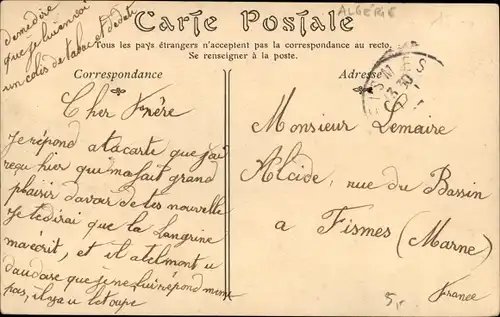 Carte Postale
ALGÉRIE
Tous les pays étrangers n'acceptent pas la correspondance au recto.
Se renseigner à la poste.
Correspondance
Adresse
de me dire
que je lui envoi
un colis de tabac et de date
Cher Frère
Je répond a ta carte que j'ai
reçu hier qui m'a fait grand
plaisir d'avoir de tes nouvelle
Je te dirai que la Langrine
m'a écrit, et il a telmont u
d'audase que je ne lui répond mème
pas, il y a u letoupe
FISMES
Monsieur Lemaire
Alcide, rue du Bassin
a Fismes (Marne)
France
5,-